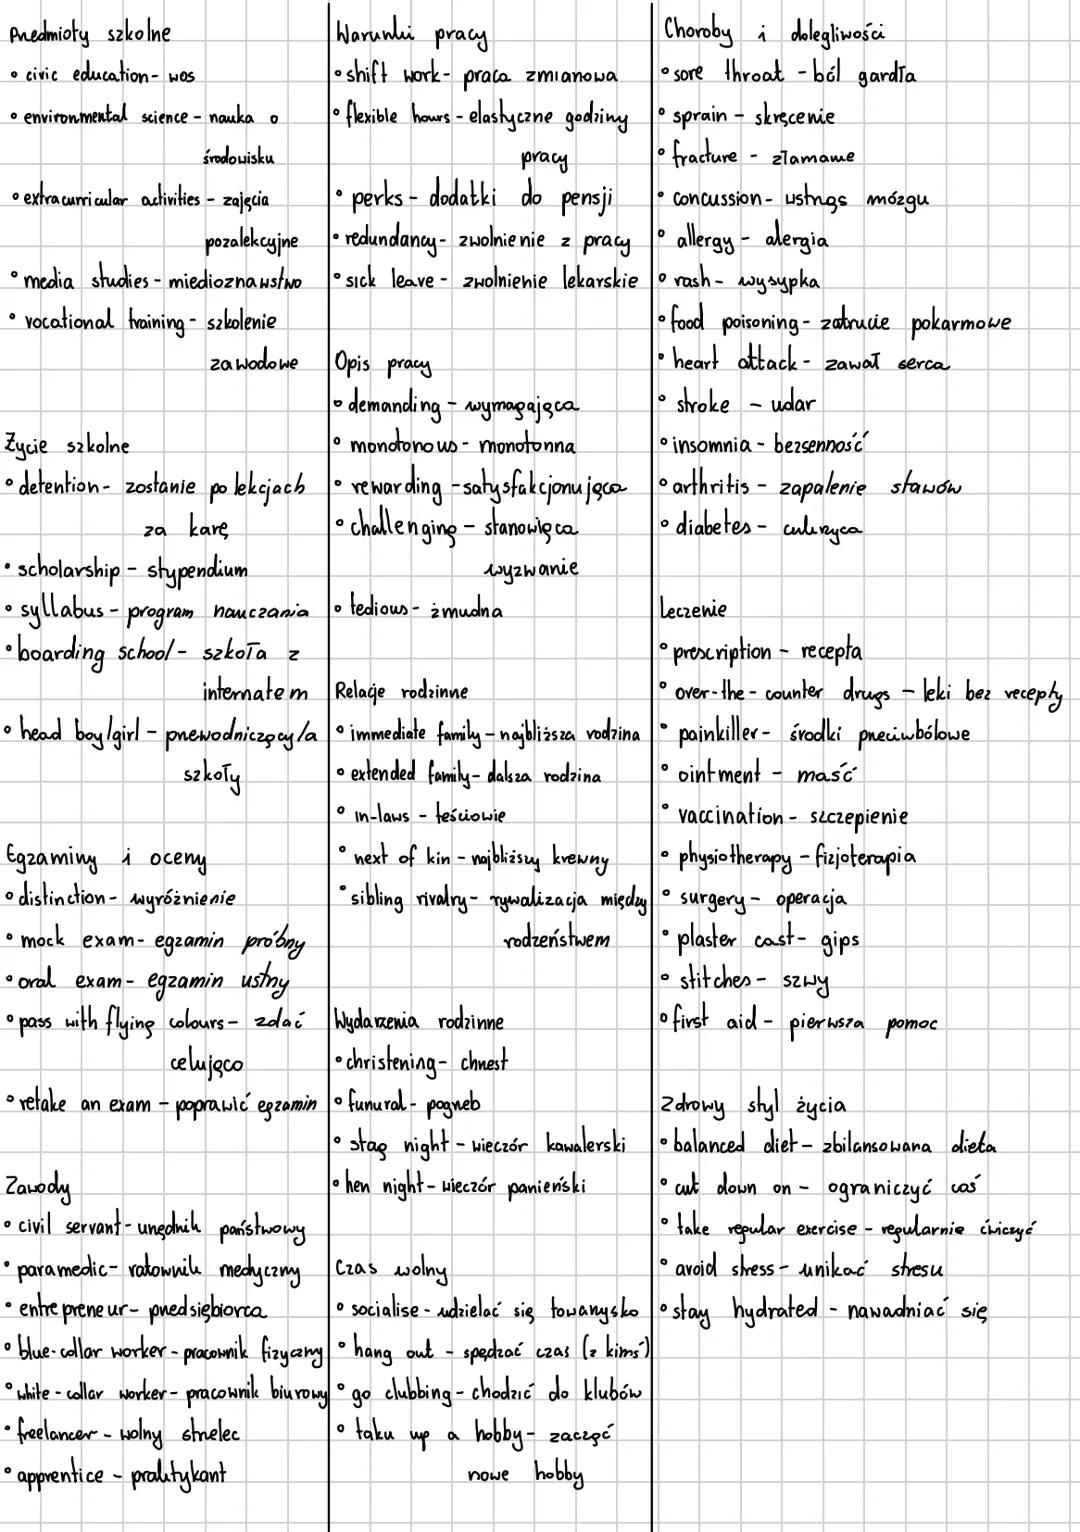 Przedmioty szkolne
• civic education - wos
• environmental science - nauka o
środowisku
• extracurricular activities - zajęcia
pozalekcyjne
• media studies - medioznawstwo
• vocational training - szkolenie
zawodowe
Życie szkolne
• detention - zostanie po lekcjach
za karę
• scholarship - stypendium
• syllabus - program nauczania
• boarding school - szkoła z
internatem
• head boy/girl - przewodniczący/a
szkoły
Egzaminy i oceny
• distinction - wyróżnienie
• mock exam - egzamin próbny
• oral exam - egzamin ustny
• pass with flying colours - zdać
celująco
• retake an exam - poprawić egzamin
Zawody
• civil servant - urzędnik państwowy
• paramedic - ratownik medyczny
• entrepreneur - przedsiębiorca
• blue-collar worker - pracownik fizyczny
• white-collar worker - pracownik biurowy
• freelancer - wolny strzelec
• apprentice - praktykant
Warunki pracy
• shift work - praca zmianowa
• flexible hours - elastyczne godziny
pracy
• perks - dodatki do pensji
• redundancy - zwolnienie z pracy
• sick leave - zwolnienie lekarskie
Opis pracy
• demanding - wymagająca
• monotonous - monotonna
• rewarding - satysfakcjonująca
• challenging - stanowiąca
wyzwanie
• tedious - żmudna
Relacje rodzinne
• immediate family - najbliższa rodzina
• extended family - dalsza rodzina
• in-laws - teściowie
• next of kin - najbliższy krewny
• sibling rivalry - rywalizacja między
rodzeństwem
Wydarzenia rodzinne
• christening - chrzest
• funural - pogrzeb
• stag night - wieczór kawalerski
• hen night - wieczór panieński
Czas wolny
• socialise - udzielać się towarzysko
• hang out - spędzać czas (z kimś)
• go clubbing - chodzić do klubów
• taku up a hobby - zacząć
nowe hobby
Choroby i dolegliwości
• sore throat - ból gardła
• sprain - skręcenie
• fracture - złamane
• concussion - wstrząs mózgu
• allergy - alergia
• rash - wysypka
• food poisoning - zatrucie pokarmowe
• heart attack - zawał serca
• stroke - udar
• insomnia - bezsenność
• arthritis - zapalenie stawów
• diabetes - cukrzyca
Leczenie
• prescription - recepta
• over-the-counter drugs - leki bez recepty
• painkiller - środki przeciwbólowe
• ointment - maść
• vaccination - szczepienie
• physiotherapy - fizjoterapia
• surgery - operacja
• plaster cast - gips
• stitches - szwy
• first aid - pierwsza pomoc
Zdrowy styl życia
• balanced diet - zbilansowana dieta
• cut down on - ograniczyć coś
• take regular exercise - regularnie ćwiczyć
• avoid stress - unikać stresu
• stay hydrated - nawadniać się